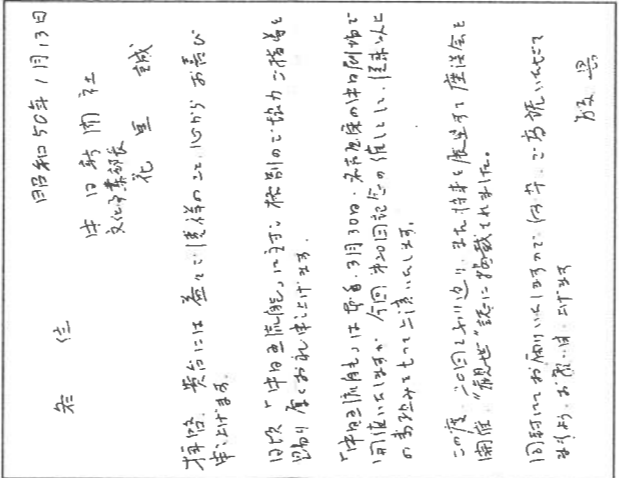 昭和50年1月13日
中日新聞社
文化事業部長
花里 誠
各位
拝啓、貴台には益々ご清祥のこと、心からお喜び
申し上げます。
日頃「中日五流能」に対し格別のご協力ご指導を
賜り厚くお礼申し上げます。
「中日五流能」は本年3月30日、名古屋の中日劇場で
開催いたしますが、今回第20回記念の催しとし、従来以上に
の意気込みをもって上演いたします。
この度、二〇回をふり返り、また将来を展望する座談会を
開催、“観世”誌に掲載されました。
同封にてお届けいたしますので、何卒、ご高読いただき
ますよう、お願い申し上げます
敬具